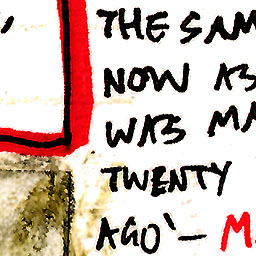 THE SAM
NOW AS
WAS MA
TWENTY
AGO'— M